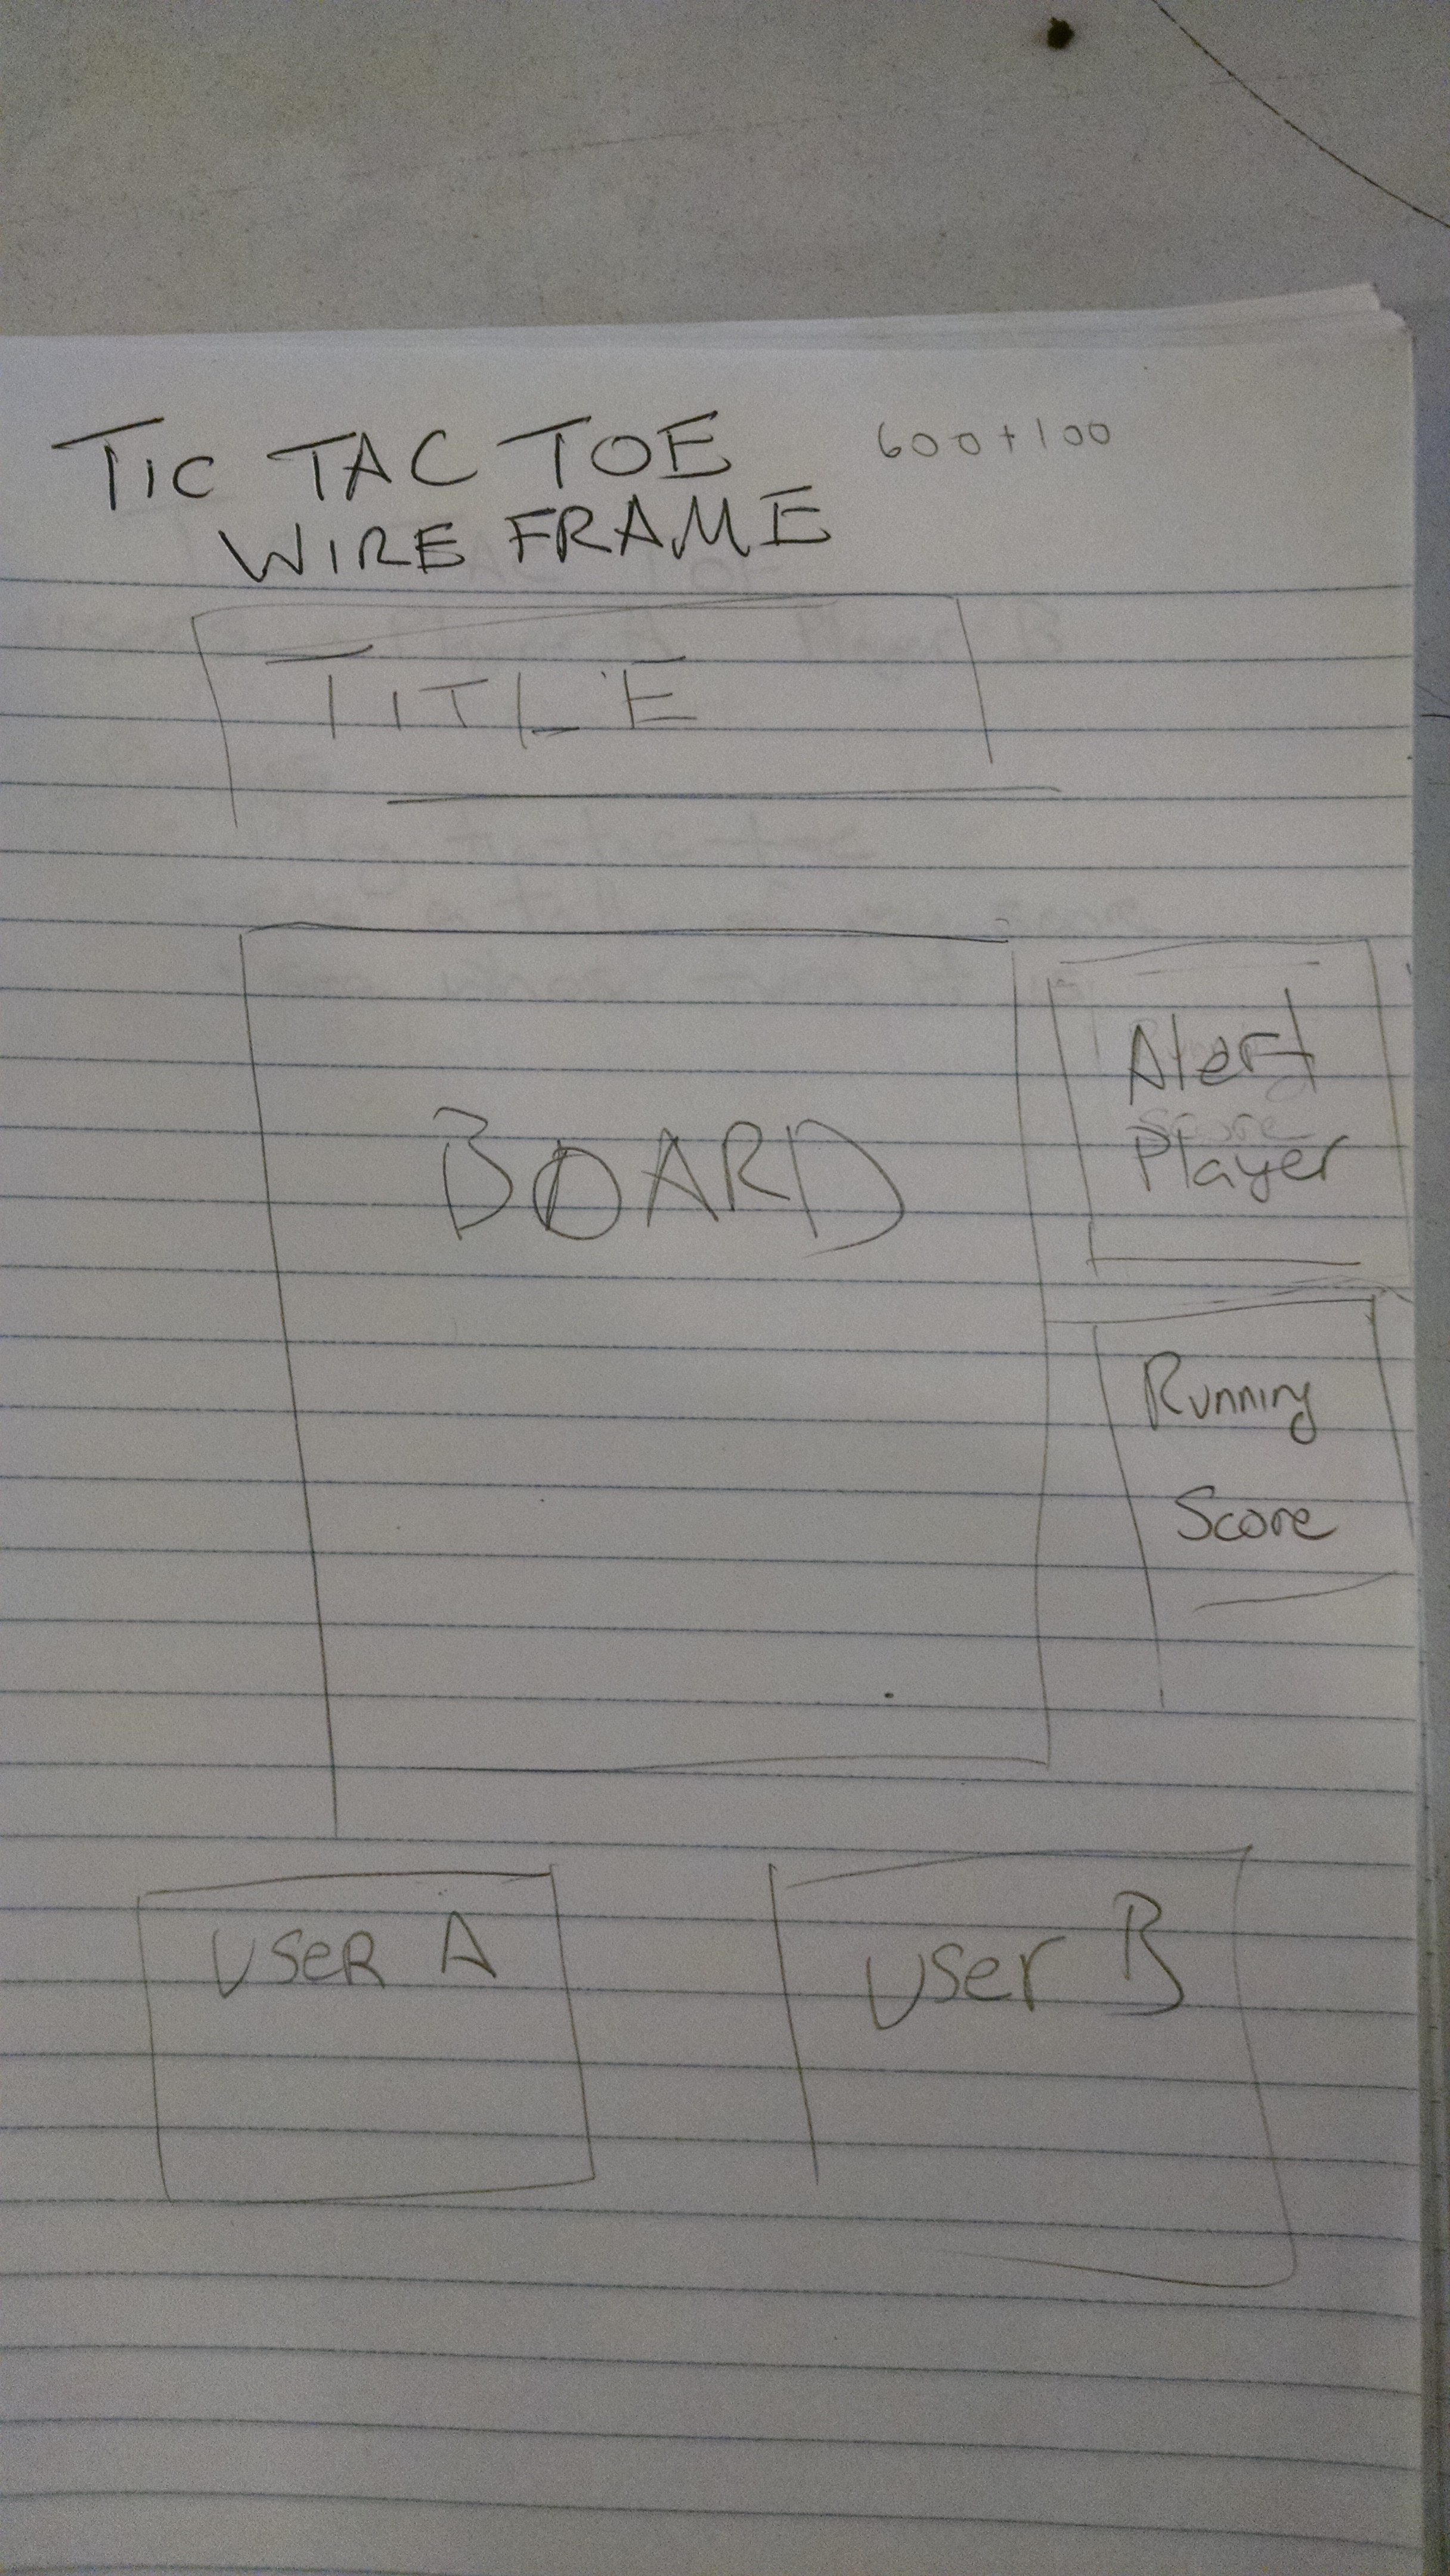 TIC TAC TOE 600+100
WIRE FRAME
TITLE
BOARD
Alert
Player
Running
Score
USER A
User B